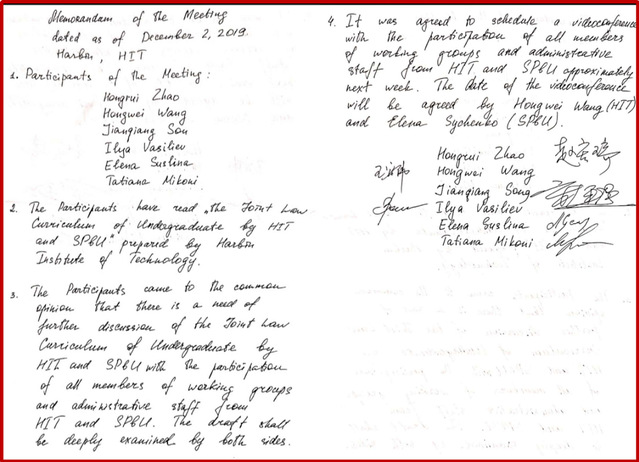 Memorandum of the Meeting
dated as of December 2, 2019
Harbin, HIT
1. Participants of the Meeting:
Hongrui Zhao
Hongwei Wang
Jianqiang Sou
Ilya Vasiliev
Elena Suslina
Tatiana Mikoni
2. The Participants have read „the Joint Law
Curriculum of Undergraduate by HIT
and SPBU" prepared by Harbin
Institute of Technology.
3. The Participants came to the common
opinion that there is a need of
further discussion of the Joint Law
Curriculum of Undergraduate by
HIT and SPBU with the participation
of all members of working groups
and administrative staff from
HIT and SPBU. The draft shall
be deeply examined by both sides.
4. It was agreed to schedule a videoconference
with the participation of all members
of working groups and administrative
staff from HIT and SPBU approximately
next week. The date of the videoconference
will be agreed by Hongwei Wang (HIT)
and Elena Sychenko (SPBU).
Hongrui Zhao
Hongwei Wang
Jianqiang Song
Ilya Vasiliev
Elena Suslina
Tatiana Mikoni